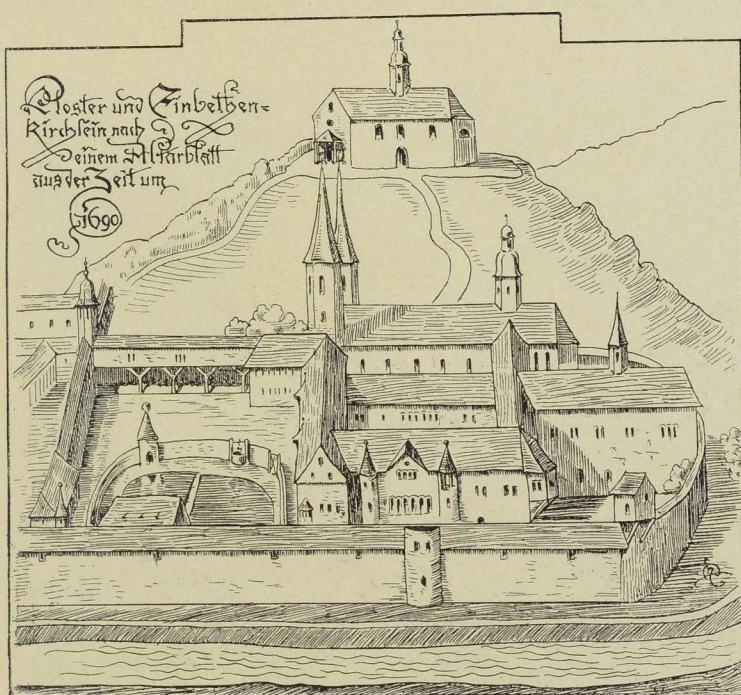 Kloster und Einbethen=
Kirchlein nach
einem Altarblatt
aus der Zeit um
1690